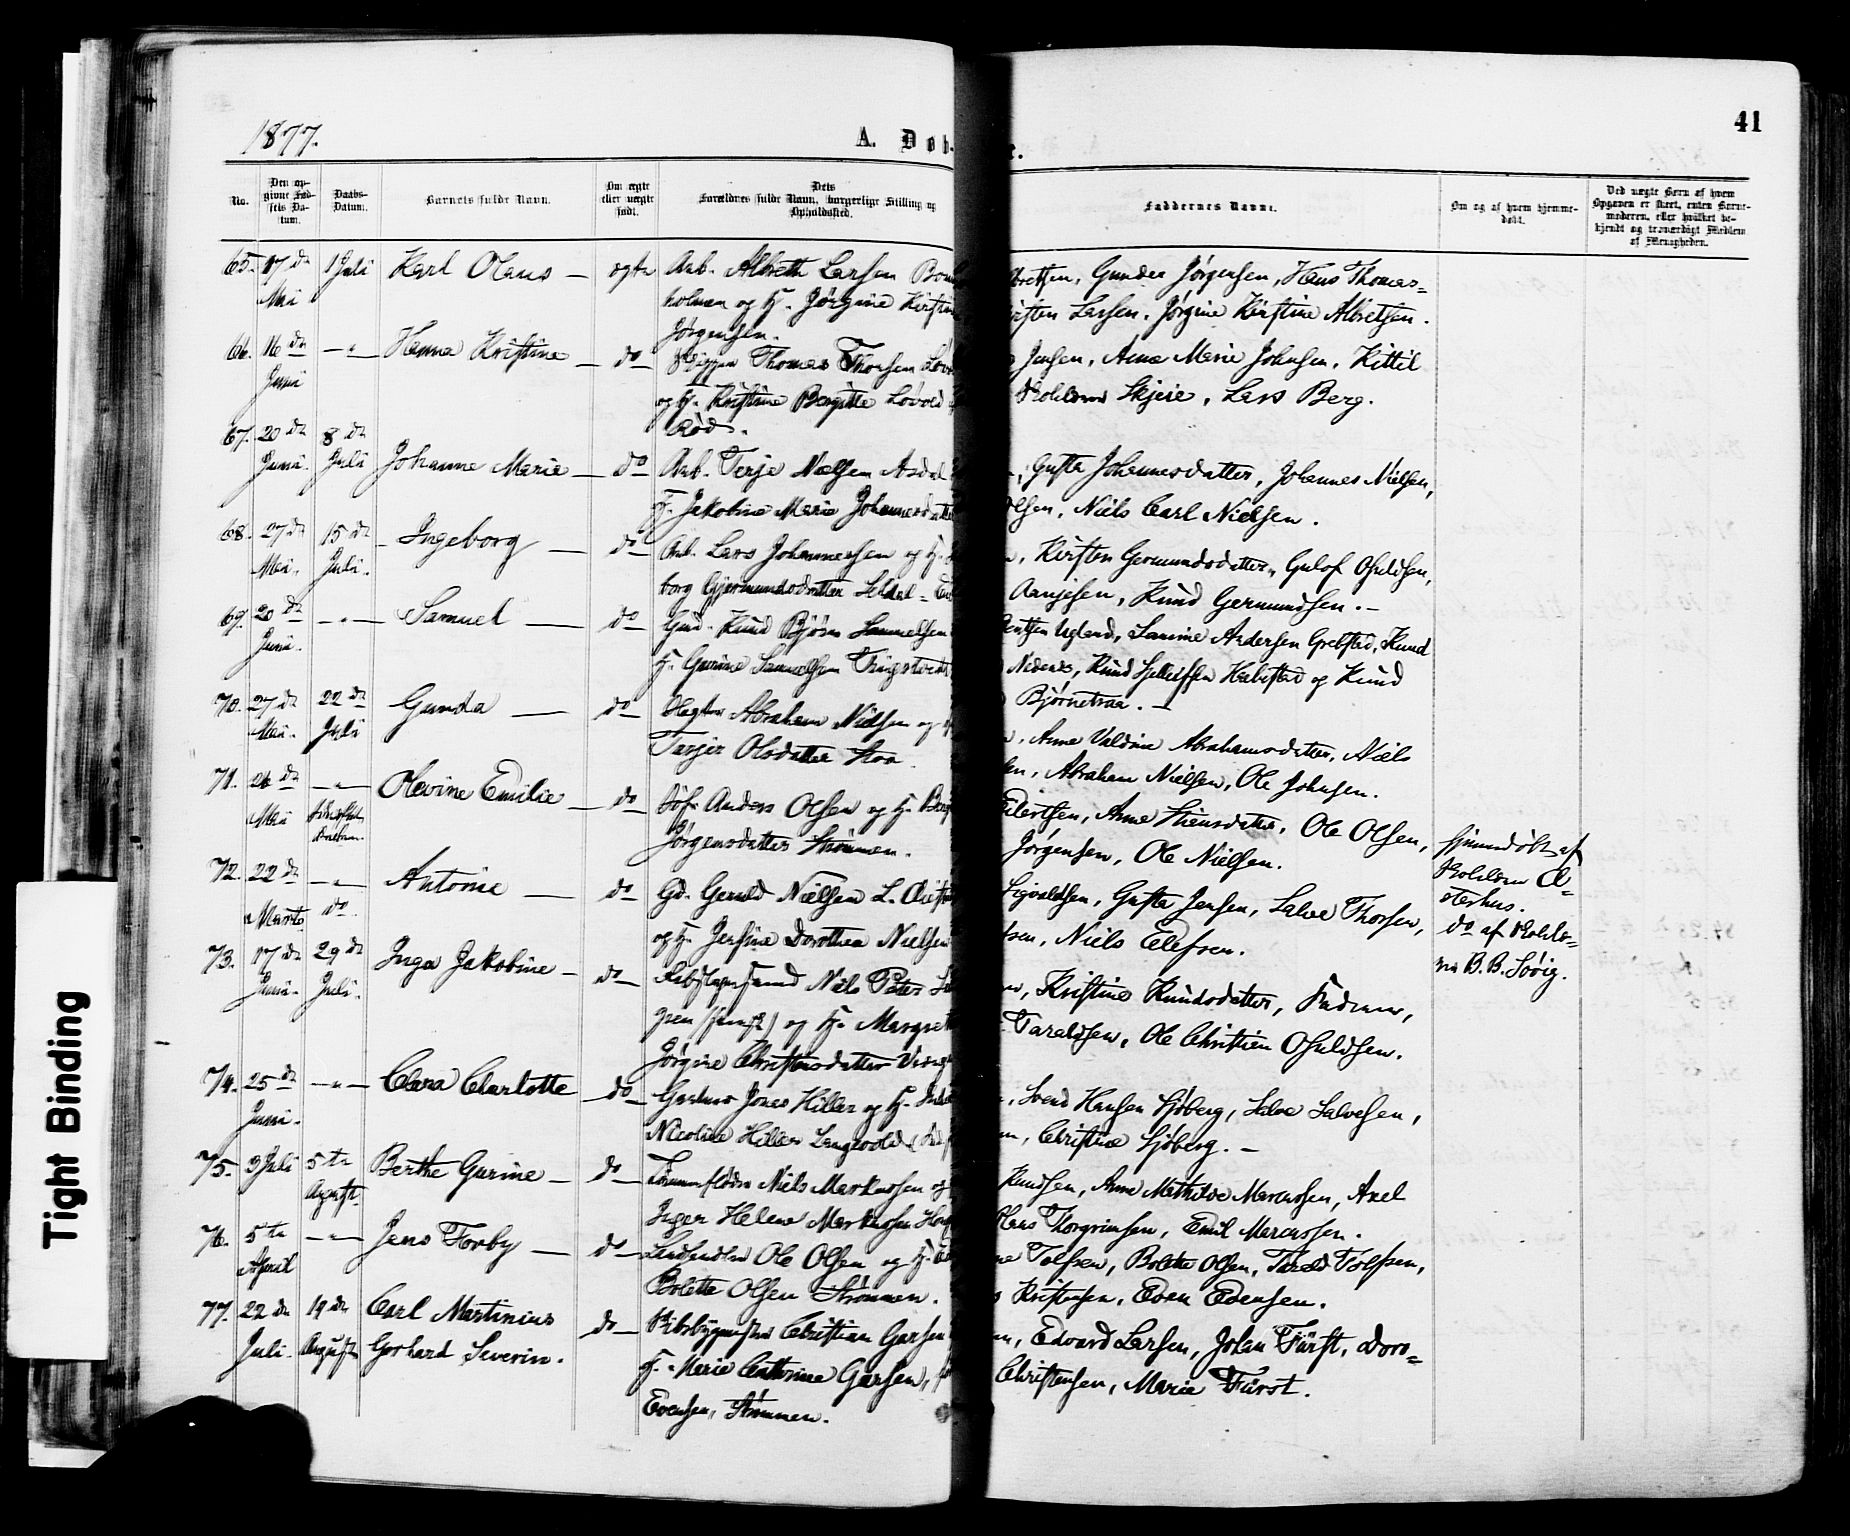 1877.
A. Døb
e.
41
No.
Den opgivne Fødsels Datum.
Daabs-Datum.
Barnets fulde Navn.
Om ægte eller uægte født.
Dets Forældres fulde Navn, borgerlige Stilling og Opholdsted.
Faddernes Navne.
Om og af hvem hjemmedøbt.
Ved uægte Børn af hvem Opgaven er skeet, enten Barnemoderen, eller hvilket bekjendt og troværdigt Medlem af Menigheden.
65. 17de Mai 1 Juli Karl Olaus — ægte Arb. Albreth Larsen Bom
holmen og H. Jørgine Kirstine
Jørgensen.
Albretsen, Gunder Jørgensen, Hans Thomas=
Kirsten Larsen, Jørgine Kirstine Albretsen.
66. 16de Juni —"— Hanna Kristine — do Skipper Thomas Thorsen Løv
og H. Kristine Bergitte Løvold
Rød.
Jensen, Anne Marie Johnsen, Kittil
Skjeie, Lars Berg.
67. 20de Juni. 8de Juli Johanne Marie — do Arb. Terje Nielsen Asdal
H. Jakobine Marie Johannesdatter
Gusta Johannesdatter, Johannes Nielsen,
Olsen, Niels Carl Nielsen.
68. 27de Mai. 15de Juli. Ingeborg — do Arb. Lars Johannessen og H.
borg Gjermundsdatter Seldal
Kirsten Germundsdatter, Gulof Osuldsen,
Aanjesen, Knud Germundsen. —
69. 20de Juni. —"— Samuel — do Gmd. Knud Bjørn Samuelsen
H. Gurine Samuelsen Tingstveit
Bentsen Ugland, Samine Andersen Grebstad, Knud
Nedenes, Knud Habestad og Knud
Bjørnetraa. —
70. 27de Mai. 22de Juli Gunda — do Abraham Nielsen og
Tarjer Olsdatter Stoa.
Anne Valdine Abrahamsdatter, Niels
sen, Abraham Nielsen, Ole Johnsen.
71. 26de Mai —"— Olevine Emilie — do Søf. Anders Olsen og H. Berg
Jørgensdatter Strømmen.
Eilertsen, Anne Stiensdatter, Ole Olsen,
Jørgensen, Ole Nielsen.
hjemmedøbt af
Kirkholderen
Østerhus.
72. 22de Marts —"— do Antonie — do Gd. Gerald Nielsen L.
og H. Jensine Dorothea Nielsen
Sigvaldsen, Gusta Jensen, Salve Thorsen,
Niels Elefsen.
do af
B. B. Sørig.
73. 17de Juni. 29de Juli. Inga Jakobine — do Rebslagersvend Niels Peter
gren og H. Margret
Jørgine Christensdatter
Kristine Knudsdatter, Faderen,
Taraldsen, Ole Christian Osuldsen.
74. 25de Juni. —"— Clara Charlotte — do Gartner Jonas Hiller og H.
Nicoline Hiller Langvold
Svend Hansen Sjøberg, Salve Salvesen,
Christine Sjøberg. —
75. 3 Juli 5te August Berthe Gurine — do Tømmerfløder Niels Markussen og
Inger Helene Markussen
Knudsen, Anne Mathilde Marcussen, Axel
Hans Thorgrimsen, Emil Marcussen.
76. 5te April —"— Jens Torby — do Ole Olsen og H.
Bolette Olsen Strømmen.
Tolfsen, Bolette Olsen, Tarald Tolfsen,
Kristensen, Even Evensen.
77. 22de Juli. 19de August Carl Martinius
Gerhard Severin. do Skibsbygmester Christian Garsen
H. Marie Cathrine Garsen,
Evensen, Strømmen.
Edvard Larsen, Johan Fürst, Doro=
Christensen, Marie Fürst.
Tight Binding